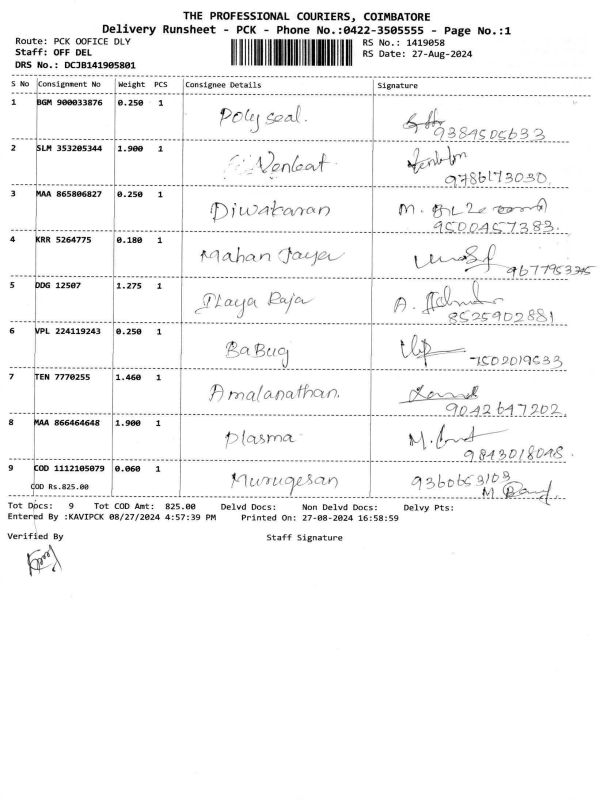 THE PROFESSIONAL COURIERS, COIMBATORE
Delivery Runsheet - PCK - Phone No.:0422-3505555 - Page No.:1
Route: PCK OOFICE DLY RS No.: 1419058
Staff: OFF DEL RS Date: 27-Aug-2024
DRS No.: DCJB141905801
S No Consignment No Weight PCS Consignee Details Signature
1 BGM 900033876 0.250 1 Poly seal.
9384505633
2 SLM 353205344 1.900 1 Venkat.
9786173030.
3 MAA 865806827 0.250 1 Diwakaran M.
9500457383.
4 KRR 5264775 0.180 1 Mahan
5 DDG 12507 1.275 1 Ilaya Raja A.
8525902881
6 VPL 224119243 0.250 1 Babug
7502019533
7 TEN 7770255 1.460 1 Amalanathan.
9042647202.
8 MAA 866464648 1.900 1 Plasma M.
9843018048.
9 COD 1112105079 0.060 1 Murugesan 9360653103
COD Rs.825.00 M.
Tot Docs: 9 Tot COD Amt: 825.00 Delvd Docs: Non Delvd Docs: Delvy Pts:
Entered By :KAVIPCK 08/27/2024 4:57:39 PM Printed On: 27-08-2024 16:58:59
Verified By Staff Signature